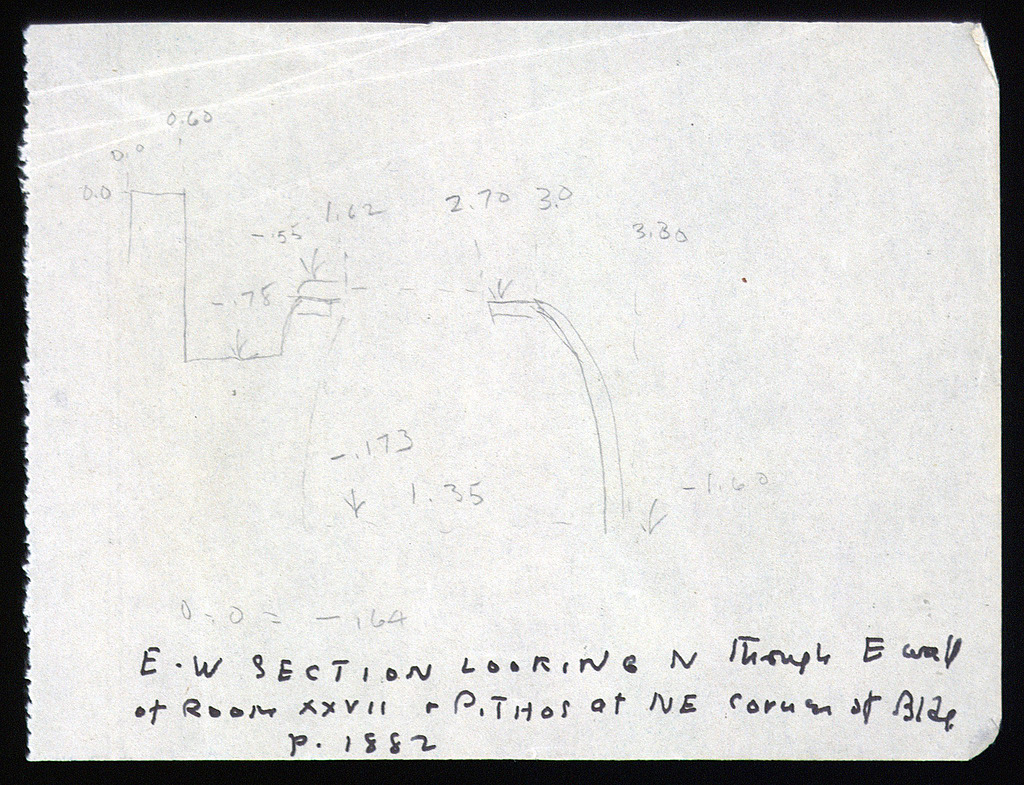 0.60
0.0
0.0
1.62
2.70
3.0
-.55
3.30
-.78
-.173
1.35
-1.60
0.0 = -.64
E-W SECTION LOOKING N Through E wall
of ROOM XXVII + PITHOS at NE corner of Bldg
p. 1882